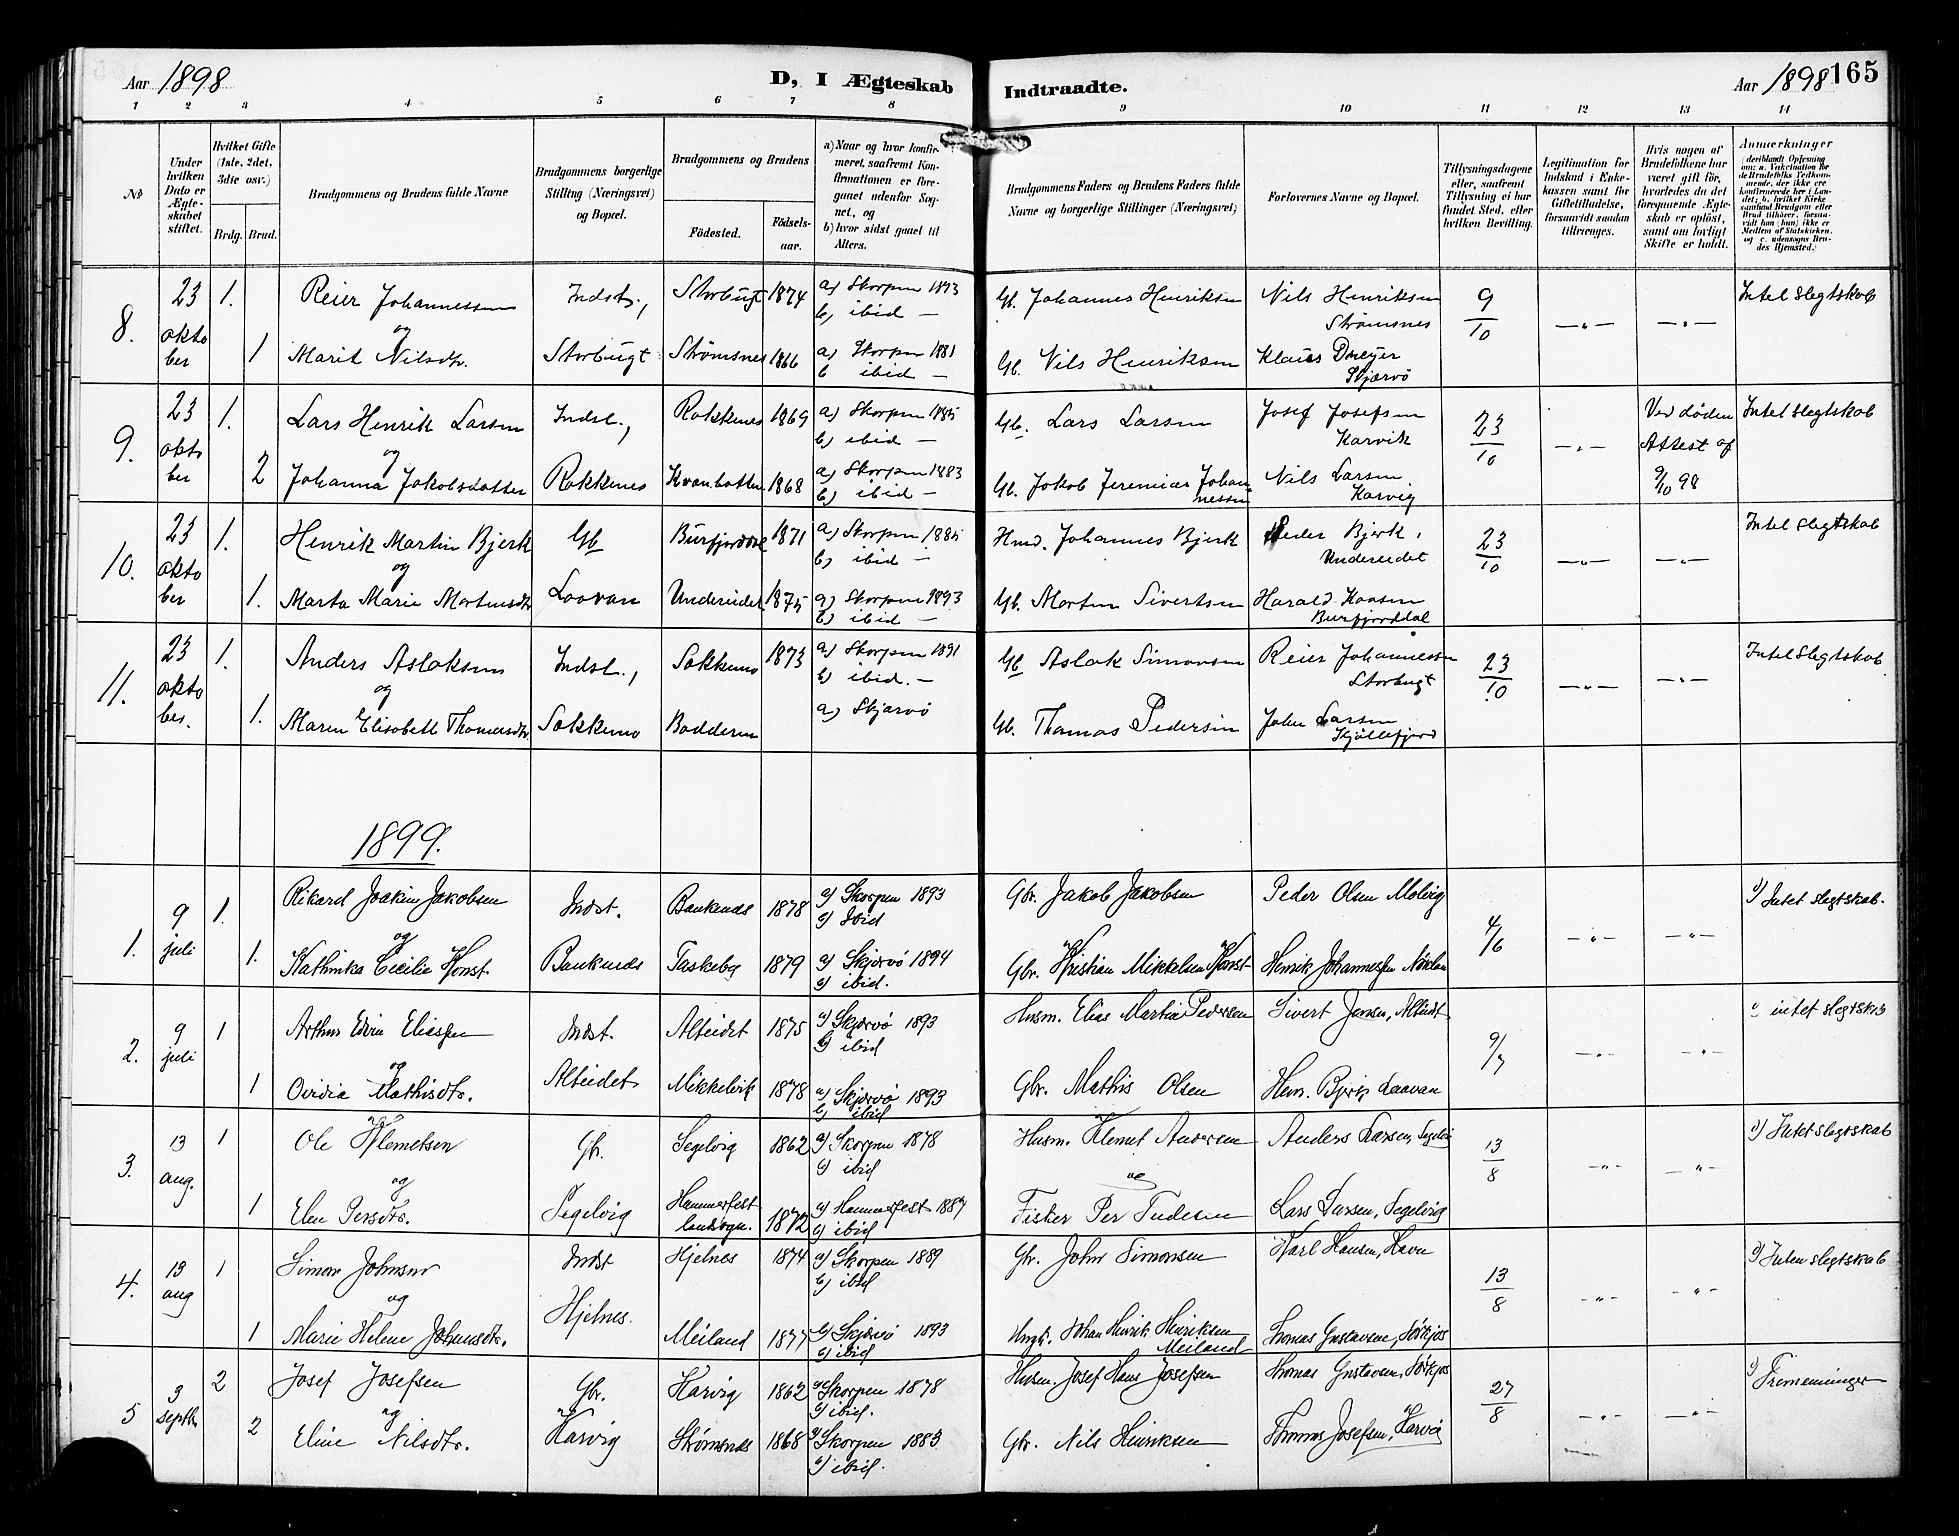 Aar 1898
D, I Ægteskab
Indtraadte.
Aar 1898
165
1 2 3 4 5 6 7 8 9 10 11 12 13 14
No
Under hvilken Dato er Ægteskabet stiftet.
Hvilket Gifte (1ste, 2det, 3die osv.)
Brdg. Brud.
Brudgommens og Brudens fulde Navne
Brudgommens borgerlige Stilling (Næringsvei) og Bopæl.
Brudgommens og Brudens
Fødested.
Fødselsaar.
a) Naar og hvor konfirmeret, saafremt Konfirmationen er foregaaet udenfor Sognet, og
b) hvor sidst gaaet til Alters.
Brudgommens Faders og Brudens Faders fulde Navne og borgerlige Stillinger (Næringsvei)
Forlovernes Navne og Bopæl.
Tillysningsdagene eller, saafremt Tillysning ei har fundet Sted, efter hvilken Bevilling.
Legitimation for Indskud i Enkekassen samt for Giftetilladelse, forsaavidt saadan tiltrænges.
Hvis nogen af Brudefolkene har været gift før, hvorledes da det foregaaende Ægteskab er opløst, samt om lovligt Skifte er holdt.
Anmærkninger
8. 23 oktober 1. Reier Johannessen Indst., Storbugt 1874 a) Skorpen 1893 b) ibid — Gb. Johannes Henriksen Nils Henriksen Strømsnes 9/10 —„— —„— Intet Slegtskab
og
1 Marit Nilsdtr. Storbugt Strømsnes 1866 a) Skorpen 1881 b ibid — Gb. Nils Henriksen Klaus Dreyer Skjærvø
9. 23 oktober 1. Lars Henrik Larsen Indst., Rakkenes 1869 a) Skorpen 1885 b) ibid — Gb. Lars Larsen Josef Josefsen Karvik 23/10 —„— Ved Døden Attest af 9/10 98 Intet Slegtskab
og
2 Johanna Jakobsdatter Rakkenes Kvænbotten 1868 a) Skorpen 1883 b) ibid — Gb. Jakob Jeremias Johannessen Nils Larsen Karvig
10. 23 oktober 1. Henrik Martin Bjerk Gb Burfjorddal 1871 a) Skorpen 1885 b) ibid — Husd. Johannes Bjerk Peder Bjerk, Undereidet 23/10 —„— —„— Intet Slegtskab
og
1. Marta Marie Mortensdtr Laavan Undereidet 1875 a) Skorpen 1893 b) ibid — Gb. Morten Sivertsen Harald Burfjorddal
11. 23 oktober. 1. Anders Aslaksen Indst., Sakkemo 1873 a) Skorpen 1891 b) ibid. — Gb Aslak Simonsen Reier Johannessen Storbugt 23/10 —„— —„— Intet Slegtskab
og
1. Maren Elisabeth Thomasdtr. Sakkemo Badderen a) Skjærvø Gb. Thomas Pedersen John Larsen Kjøllefjord
1899.
1. 9 juli 1. Rikard Joakim Jakobsen Indst. Baukenes 1878 a) Skorpen 1893 b) ibid Gbr. Jakob Jakobsen Peder Olsen Molvig 4/6 —„— —„— a) Intet Slegtskab.
og
1. Kathinka Cecilie Horst. Baukenes Taskeby 1879 a) Skjervø 1894 b) ibid. Gbr. Kristian Mikkelsen Horst Henrik Johannessen
2. 9 juli 1 Arthur Edvin Eliassen Indst. Alteidet 1875 a) Skjervø 1893 b) ibid Husm. Elias Martin Pedersen Sivert Jensen, Alteidet 9/7 —„— —„— intet slegtskab
og
1 Ovidia Mathisdtr. Alteidet Mikkelvik 1878 a) Skjervø 1893 b) ibid Gbr. Mathis Olsen Henr. Bjerk, Laavan
3. 13 aug. 1 Ole Klemetsen Gbr. Segelvig 1862 a) Skorpen 1878 b) ibid Husm. Klemet Andersen Anders Larsen, Segelvi 13/8 —„— —„— a) Intet slegtskab
og
1 Elen Persdtr. Segelvig Hammerfest landsogn. 1872 a) Hammerfest 1887 b) ibid Fisker Per Tudesen Lars Larsen, Segelvig
4. 13 aug 1 Simon Johnsen Indst Hjelnes 1874 a) Skorpen 1889 b) ibid Gbr. John Simonsen Karl Hansen, Havn 13/8 —„— —„— Intet slegtskab
og
1 Marie Helene Johansdtr. Hjelnes. Meiland 1877 a) Skjervø 1893 b) ibid Ungk. Johan Henrik Henriksen Meiland Thomas Gustavsen, Sørkjos
5 3 septbr 2 Josef Josefsen Gbr. Karvig 1862 a) Skorpen 1878 b) ibid. Husm. Josef Hans Josefsen Thomas Gustavsen, Sørkjos 27/8 —„— —„— Tremenninger
og
2 Eline Nilsdtr. Karvig Strømsnes 1868 a) Skorpen 1883 b) ibid. Gbr. Nils Henriksen Thomas Josefsen, Karvig